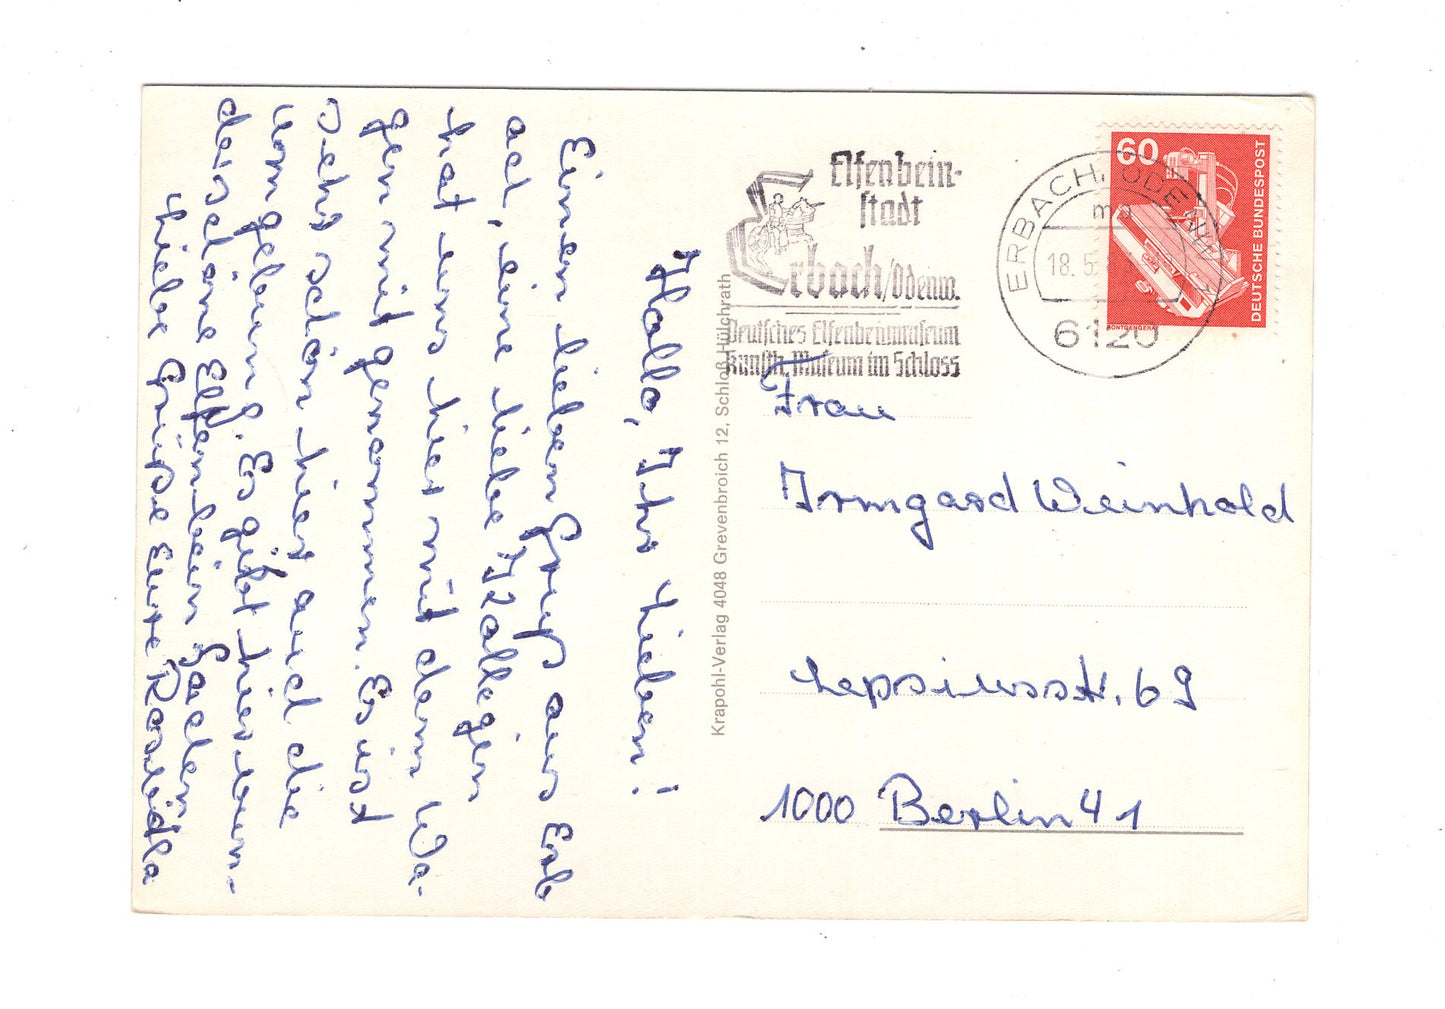 Hallo, Ihr Lieben!
Einen lieben Gruß aus Erb
ach, eine liebe Kollegin
hat uns hier mit dem Wa-
gen mit genommen. Es ist
sehr schön hier auch die
Umgebung. Es gibt hier wun-
derschöne Elfenbein Sachen
Liebe Grüße Eure
Elfenbein-
stadt
Erbach/Odenw.
Deutsches Elfenbeinmuseum
Kunsth. Museum im Schloss
ERBACH, ODENW
ma
18. 5
6120
60
DEUTSCHE BUNDESPOST
RÖNTGENGERÄT
Krapohl-Verlag 4048 Grevenbroich 12, Schloß Hülchrath
Frau
Irmgard Weinhold
Lepsiusstr. 69
1000 Berlin 41